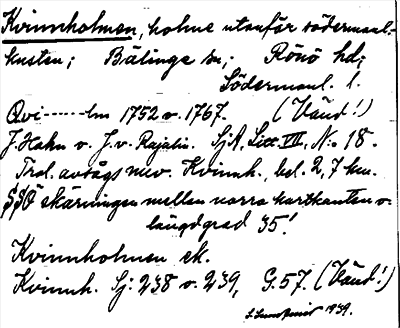 Kvinnholmen, holme utanför södermanl.-
kusten; Bälinge sn; Rönö hd;
Södermanl. l.
Qvi------lm 1752 o. 1767. (Vänd!)
J. Hahn o. J. v. Rajalin. SjA, Litt. VII, N:o 18.
Trol. avsågs nuv. Kvinnh. bel. 2,7 km.
SSO skärningen mellan norra kartkanten o.
längdgrad 35'.
Kvinnholmen ek.
Kvinnh. Sj: 238 o. 239, G. 57. (Vänd!)
1939.